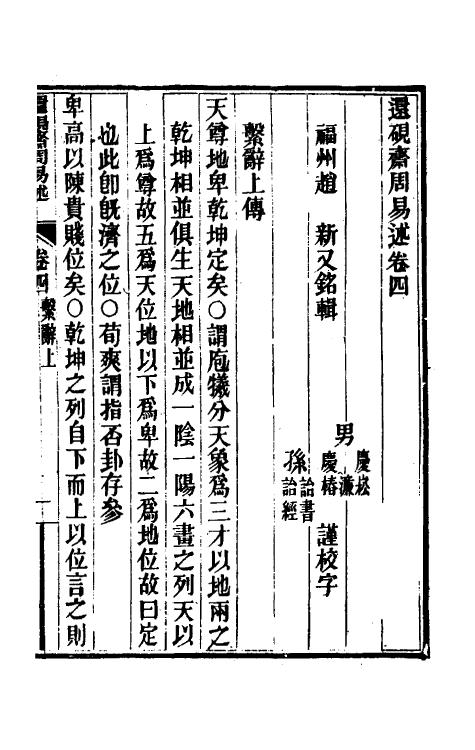 還硯齋周易述卷四
福州趙　新又銘輯
男
慶崧
濂
慶椿
孫
詒書
詒經
謹校字
繫辭上傳
天尊地卑乾坤定矣○謂庖犧分天象爲三才以地兩之
乾坤相並俱生天地相並成一陰一陽六畫之列天以
上爲尊故五爲天位地以下爲卑故二爲地位故曰定
也此卽旣濟之位○荀爽謂指否卦存參
卑高以陳貴賤位矣○乾坤之列自下而上以位言之則
還硯齋周易述
卷四
繫辭上